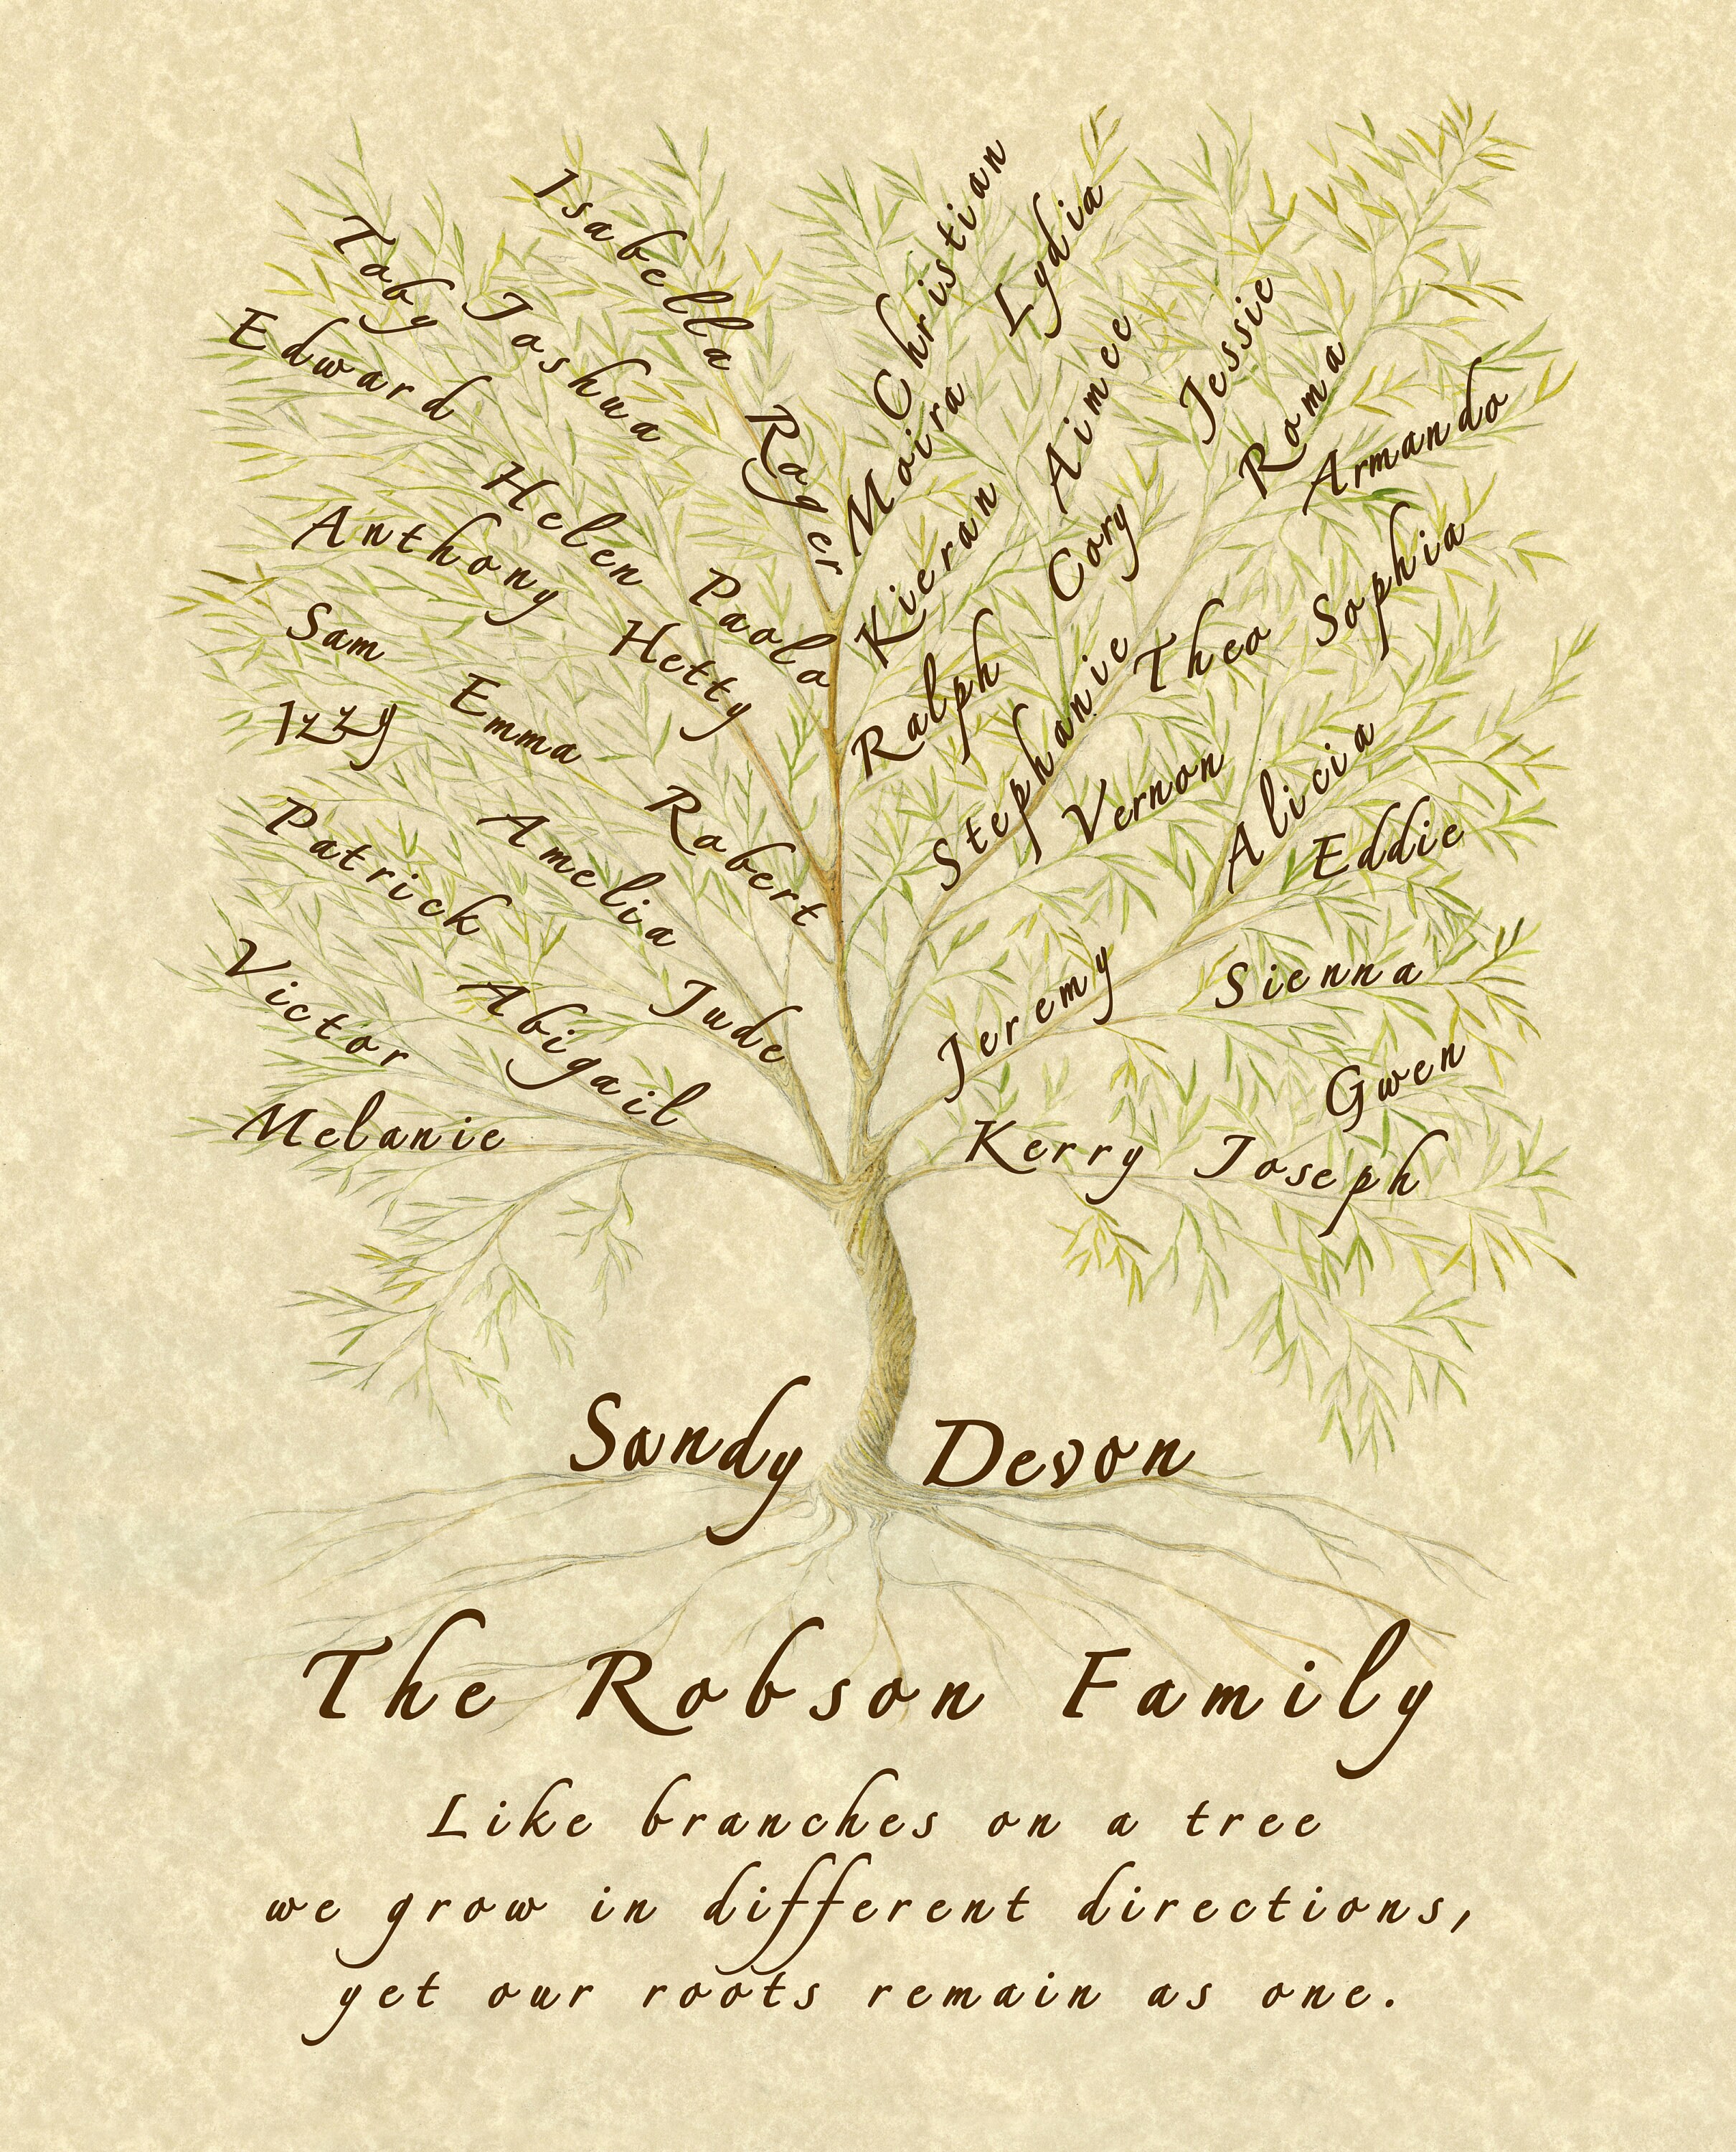 Christian
Isabella
Lydia
Toby
Joshua
Edward
Jessie
Aimee
Roma
Moira
Roger
Armando
Helen
Kieran
Anthony
Cory
Sophia
Paola
Hetty
Theo
Sam
Ralph
Stephanie
Izzy
Emma
Vernon
Alicia
Patrick
Robert
Amelia
Eddie
Victor
Jude
Abigail
Jeremy
Sienna
Gwen
Melanie
Kerry
Joseph
Sandy Devon
The Robson Family
Like branches on a tree
we grow in different directions,
yet our roots remain as one.